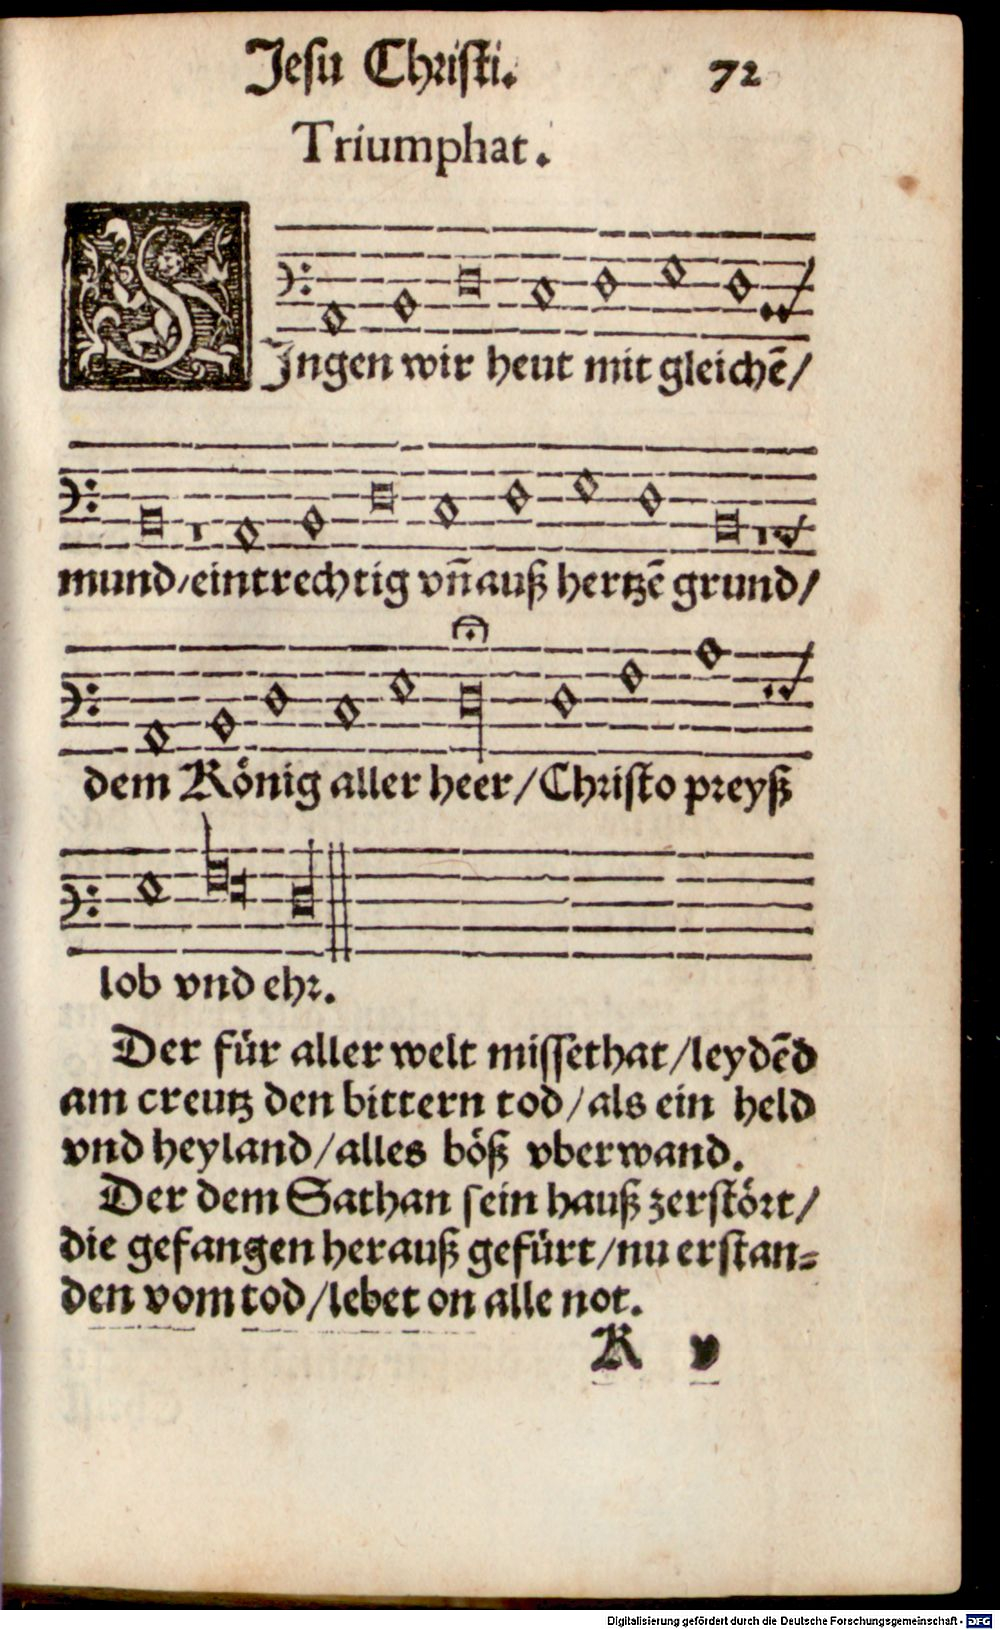 Jesu Christi. 72
Triumphat.
SIngen wir heut mit gleichē/
mund/eintrechtig vn̄ auß hertzē grund/
dem König aller heer/Christo preyß
lob vnd ehr.
Der für aller welt missethat/leydēd
am creutz den bittern tod/als ein held
vnd heyland/alles böß vberwand.
Der dem Sathan sein hauß zerstört/
die gefangen herauß gefürt/nu erstan=
den vom tod/lebet on alle not.
K v
Digitalisierung gefördert durch die Deutsche Forschungsgemeinschaft - DFG